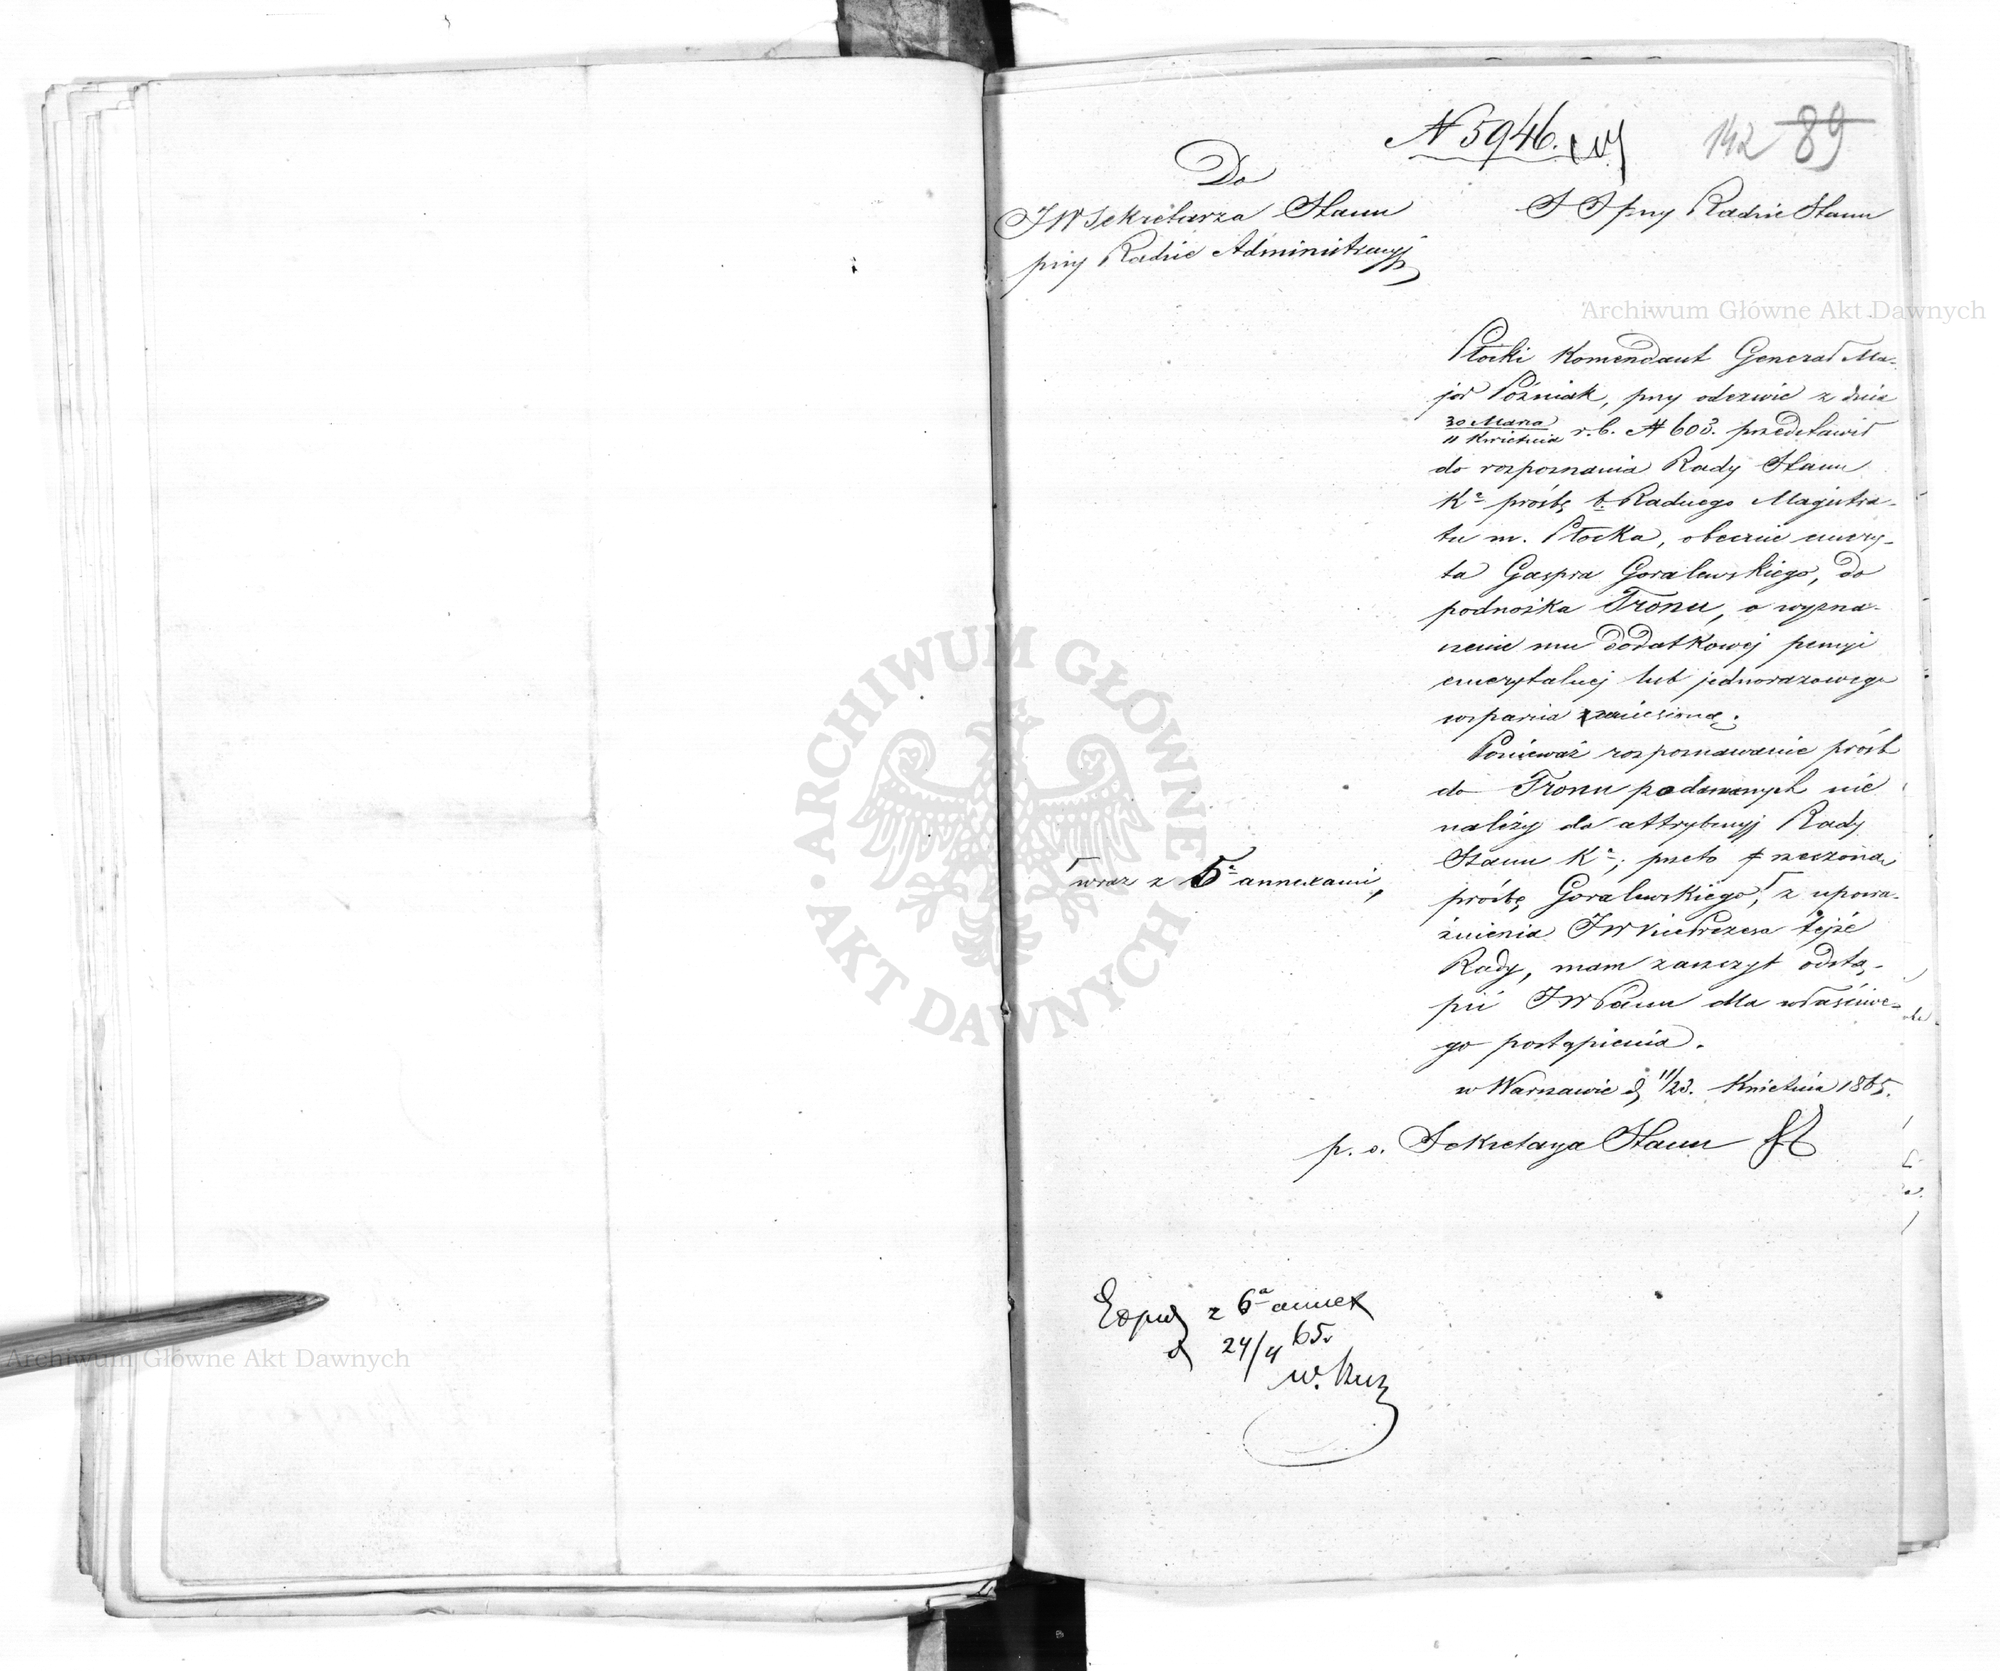 N 5946.
142 89
Do
JW Sekretarza Stanu
przy Radzie Administracyj
S S przy Radzie Stanu
Archiwum Główne Akt Dawnych
Płocki Komendant Generał Ma-
jor Poźniak, przy odezwie z dnia
30 Marca
11 Kwietnia r. b. N 603. przedstawił
do rozpoznania Rady Stanu
Kr. prośbę b. Radnego Magistra-
tu m. Płocka, obecnie emery-
ta Gaspra Goralewskiego, do
podnóżka Tronu, o wyzna-
czenie mu dodatkowej pensyi
emerytalnej lub jednorazowego
wsparcia zaniesioną.
Ponieważ rozpoznawanie próśb
do Tronu podawanych nie
należy do attrybucyj Rady
Stanu Ka; przeto rzeczoną
prośbę Goralewskiego, z upowa-
żnienia JW VicePrezesa tejże
Rady, mam zaszczyt odstą-
pić JW Panu dla właściwe-
go postąpienia.
wraz z 6a annexami,
w Warszawie d. 11/23. Kwietnia 1865.
p. o. Sekretarza Stanu
Exped z 6a annex
d 24/4 65
ARCHIWUM GŁÓWNE AKT DAWNYCH
Archiwum Główne Akt Dawnych